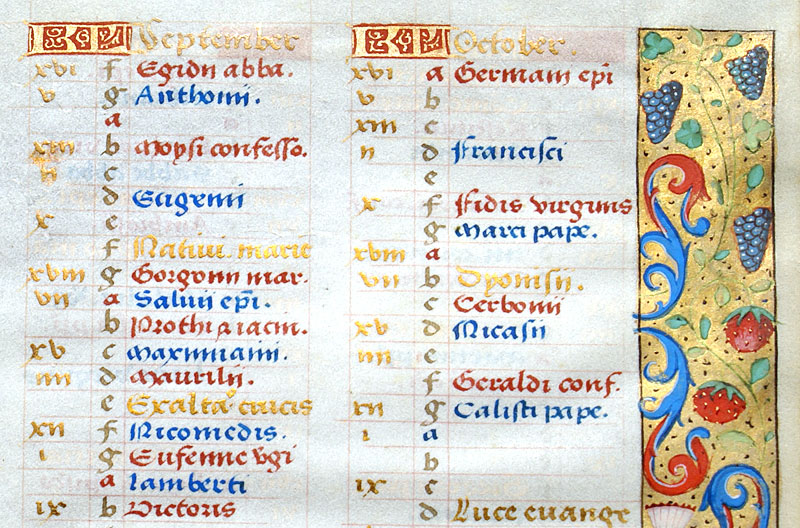 KL September
xvi f Egidii abba.
v g Anthonii.
a
xiii b Moysi confesso.
ii c
d Eugenii
x e
f Natiui. marie
xviii g Gorgonii mar.
vii a Saluii epi.
b Prothi & iacin.
xv c Maximiani.
iiii d Maurilii.
e Exalta° crucis
xii f Nicomedis.
i g Eufemie vgi
a Lamberti
ix b Victoris
KL October.
xvi a Germani epi
v b
xiii c
ii d Francisci
e
x f Fidis virginis
g Marci pape.
xviii a
vii b Dyonisii.
c Cerbonii
xv d Nicasii
iiii e
f Geraldi conf.
xii g Calisti pape.
i a
b
ix c
d Luce euange